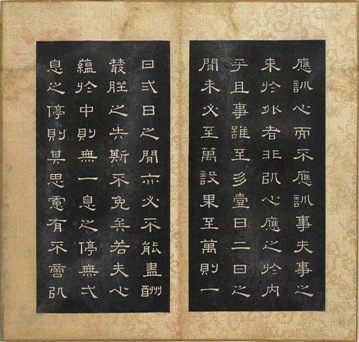 應訓心而不應訓事夫事之
來於外者非以心應之於內
乎且事雖至多壹日二日之
間未必至萬設果至萬則一
日弍日之間亦必不能盡酬
叢脞之失斯不免矣若夫心
蘊於中則無一息之停無弌
息之停則其思慮有不啻以